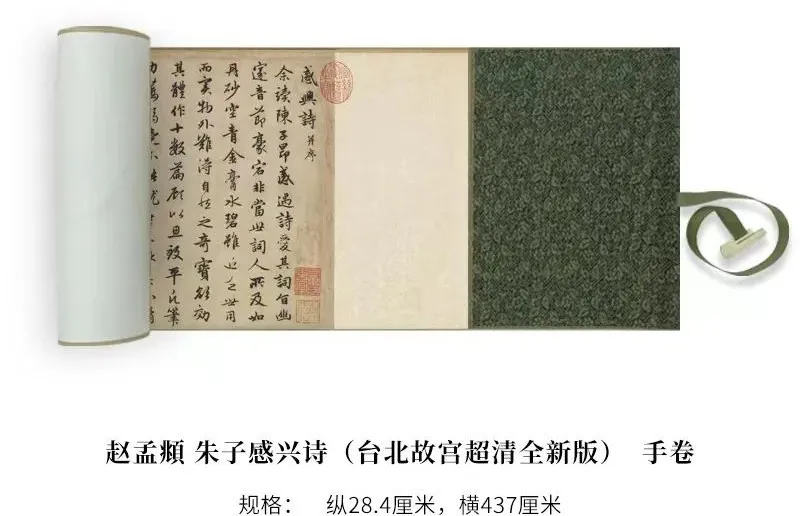 感興詩 并序
余讀陳子昂感遇詩愛其詞旨幽
邃音節豪宕非當世詞人所及如
丹砂空青金膏水碧雖近乏世用
而實物外難得自然之奇寶欲效
其體作十數篇顧以思致平凡筆
赵孟頫 朱子感兴诗（台北故宫超清全新版） 手卷
规格： 纵28.4厘米，横437厘米